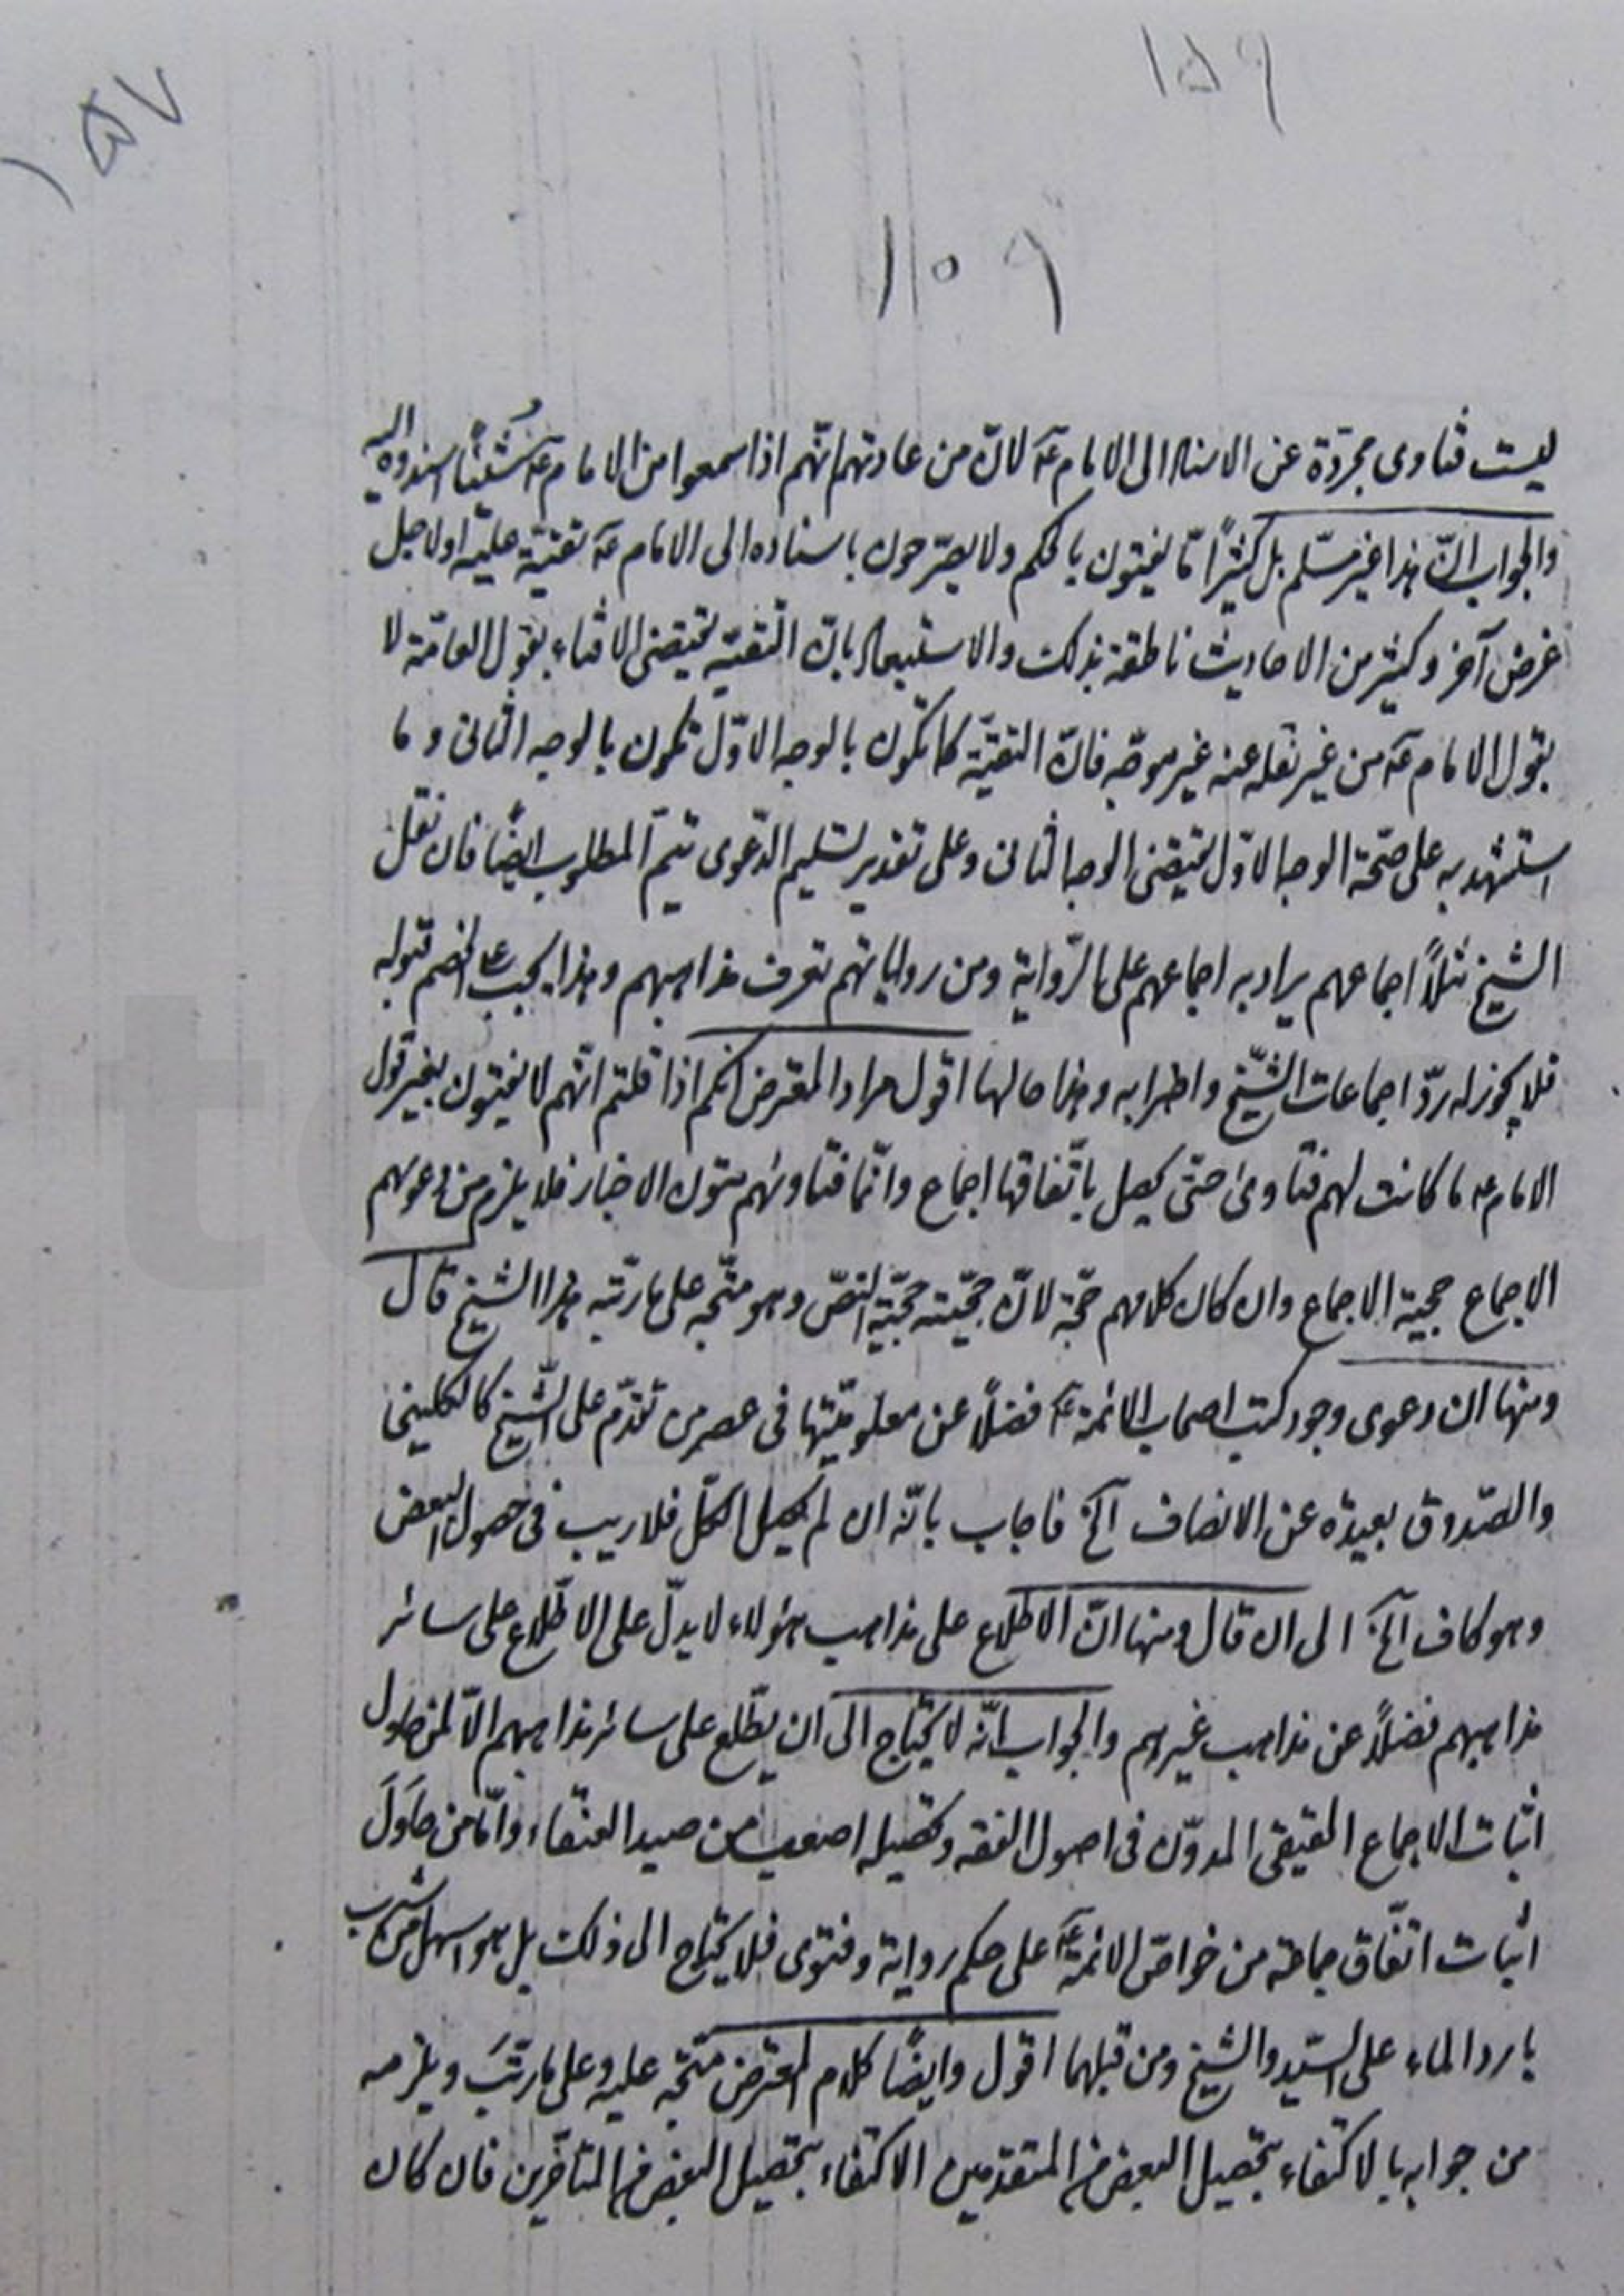 ١٥٧
١٥٩
١١٥٩
ليست فتاوى مجرّدة عن الاسناد الى الامام عَ لانّ من عادتهم انّهم اذا سمعوا من الامام عَ شيئًا اسندوه اليه
والجواب انّ هذا غير مسلّم بل كثيرًا مّا يفتون بالحكم ولا يصرّحون باسناده الى الامام عَ تقيّة عليه او لاجل
غرض آخر وكثير من الاحاديث ناطقة بذلك والاستبعاد بانّ التقيّه تقتضى الافتاء بقول العامّة لا
بقول الامام عَ من غير نقله عنه غير موجّه فانّ التقيّة كما تكون بالوجه الاوّل تكون بالوجه الثانى وما
استشهد به على صحّة الوجه الاوّل يقتضى الوجه الثانى وعلى تقدير تسليم الدّعوى يتمّ المطلوب ايضًا فان نقل
الشيخ مثلًا اجماعهم يراد به اجماعهم على الرّواية ومن رواياتهم تعرف مذاهبهم وهذا يجب على الخصم قبوله
فلا يجوز له ردّ اجماعات الشّيخ واضرابه وهذا حالها اقول مراد المعترض انّكم اذا قلتم انّهم لا يفتون بغير قول
الامام عَ ما كانت لهم فتاوى حتى يحصل باتّفاقها اجماع وانّما فتاويهم متون الاخبار فلا يلزم من دعويهم
الاجماع حجية الاجماع وان كان كلامهم حجّة لانّ حجّيته حجّيّة النصّ وهو متّجه على ما رتّبه هذا الشيخ قال
ومنها ان دعوى وجود كتب اصحاب الائمة عَ فضلًا عن معلوميّتها فى عصر من تقدّم على الشّيخ كالكلينى
والصّدوق بعيدة عن الانصاف آلخ فاجاب بانّه ان لم يحصل الكلّ فلا ريب فى حصول البعض
وهو كاف آلخ الى ان قال ومنها انّ الاطّلاع على مذاهب هؤلاء لا يدلّ على الاطّلاع على سائر
مذاهبهم فضلًا عن مذاهب غيرهم والجواب انّه لا يحتاج الى ان يطّلع على سائر مذاهبهم الّا لمن حاول
اثبات الاجماع الحقيقى المدوّن فى اصول الفقه وتحصيله اصعب من صيد العنقاء وامّا من حاوَلَ
اثبات اتّفاق جماعة من خواصّ الائمة عَ على حكم رواية وفتوى فلا يحتاج الى ذلك بل هو اسهل من شرب
بارد الماء على السيّد والشيخ ومن قبلهما اقول وايضًا كلام المعترض متّجه عليه وعلى ما رتّبَ ويلزمه
من جوابه بالاكتفاء بتحصيل البعض من المتقدّمين الاكتفاء بتحصيل البعض من المتأخّرين فان كان